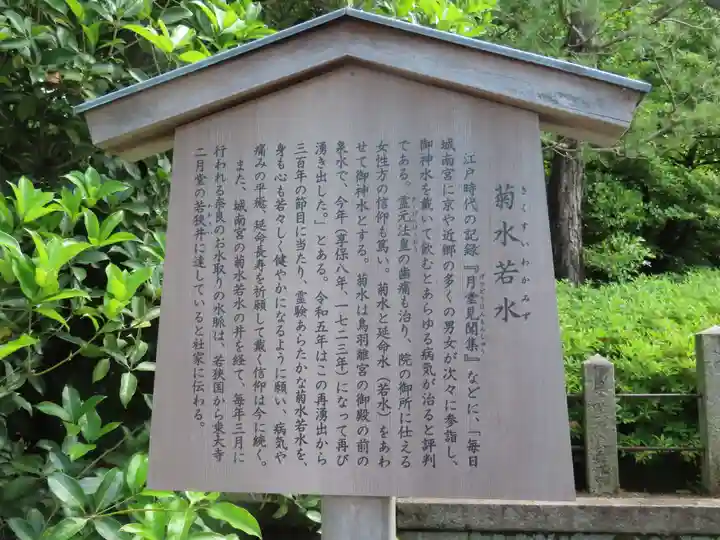 菊水若水
きくすいわかみず
江戸時代の記録『月堂見聞集』などに、「毎日
げつどうけんもんしゅう
城南宮に京や近郷の多くの男女が次々に参詣し、
御神水を戴いて飲むとあらゆる病気が治ると評判
である。霊元法皇の歯痛も治り、院の御所に仕える
女性方の信仰も篤い。菊水と延命水(若水)をあわ
せて御神水とする。菊水は鳥羽離宮の御殿の前の
泉水で、今年(享保八年、一七二三年)になって再び
湧き出した。」とある。令和五年はこの再湧出から
三百年の節目に当たり、霊験あらたかな菊水若水を、
身も心も若々しく健やかになるように願い、病気や
痛みの平癒、延命長寿を祈願して戴く信仰は今に続く。
また、城南宮の菊水若水の井を経て、毎年三月に
行われる奈良のお水取りの水脈は、若狭国から東大寺
二月堂の若狭井に達していると社家に伝わる。